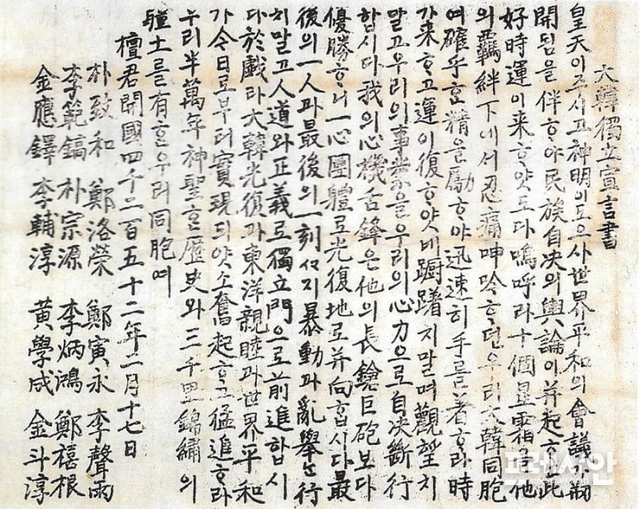 大韓獨立宣言書
皇天이주시고神明이도으사世界平和의會議가刱
開됨을伴ᄒᆞ야民族自決의輿論이幷起ᄒᆞ니此
好時運이來ᄒᆞ얏도다嗚呼라十個星霜을他
의羈絆下에서忍痛呻吟ᄒᆞ던우리大韓同胞
여確乎ᄒᆞᆫ精을勵ᄒᆞ야迅速히手를着ᄒᆞ라時
가來ᄒᆞ고運이復ᄒᆞ얏네躊躇치말며觀望치
말고우리의事業을우리의心力으로自決斷行
합시다我의心機舌鋒은他의長鎗巨砲보다
優勝ᄒᆞ니一心團體로光復地로幷向합시다最
後의一人과最後의一刻ᄭᆞ지暴動과亂擧는行
치말고人道와正義로獨立門으로前進합시
다於戱라大韓光復과東洋親睦과世界平和
가今日로부터實現되얏소奮起ᄒᆞ고猛進ᄒᆞ라
우리半萬年神聖ᄒᆞᆫ歷史와三千里錦繡의
疆土를有ᄒᆞᆫ우리同胞여
檀君開國四千二百五十二年二月十七日
朴致和 鄭洛榮 鄭寅永 李聖雨
李範鎬 朴宗源 李炳鴻 鄭禧根
金應鐸 李輔淳 黃學成 金斗淳
프레시안